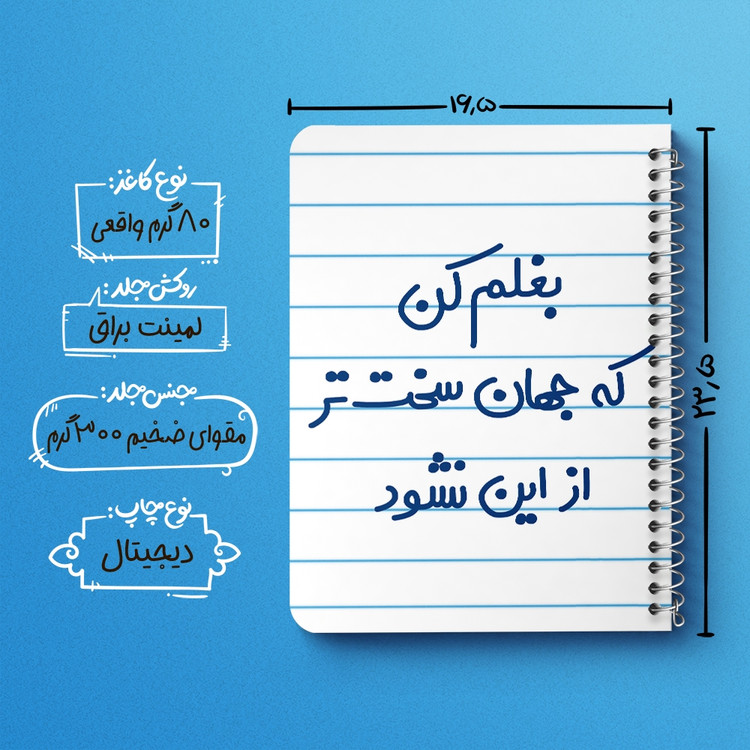 ۱۶٫۵
نوع کاغذ:
۸۰ گرم واقعی
روکش جلد:
لمینت براق
جنس جلد:
مقوای ضخیم ۳۰۰ گرم
نوع چاپ:
دیجیتال
بغلم کن
که جهان سخت‌تر
از این نشود
۲۳٫۵